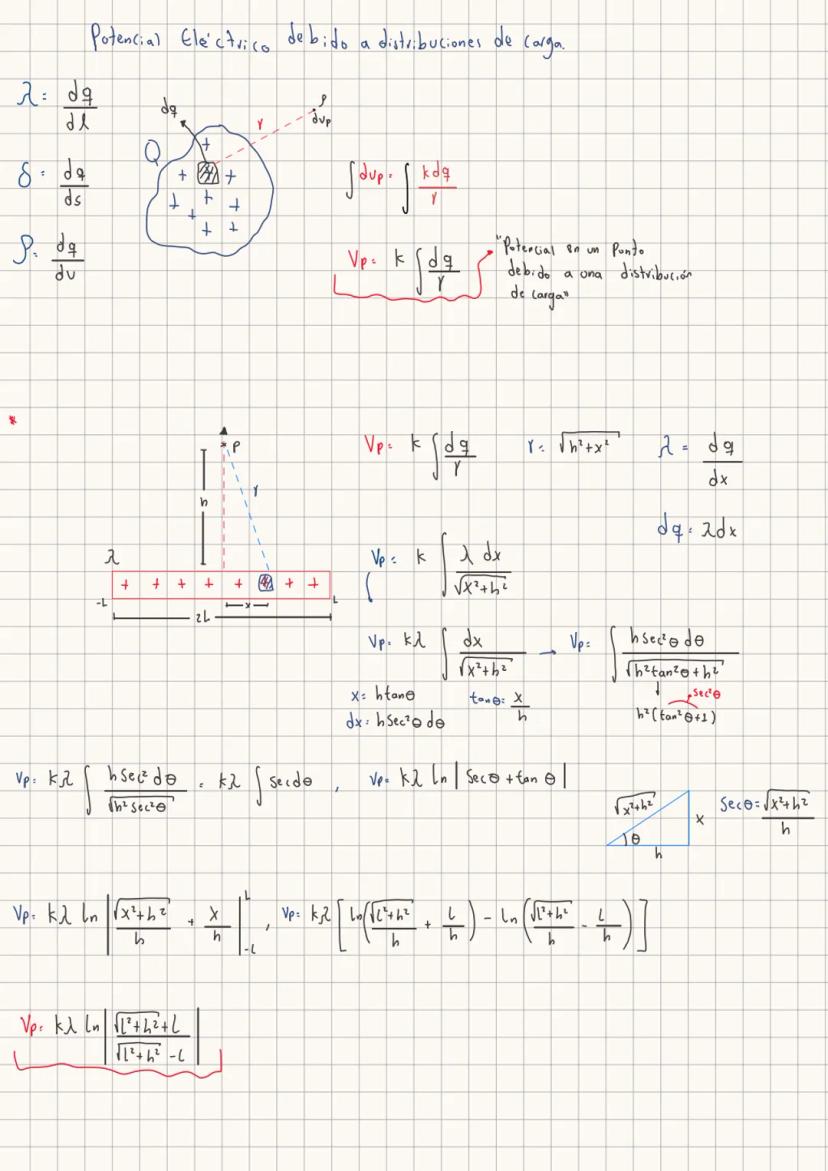 Potencial Eléctrico debido a distribuciones de carga.
λ = dq/dl
dq
r
P
dvp
Q
δ = dq/ds
∫dvp = ∫ kdq/r
ρ = dq/dv
Vp = k ∫ dq/r
"Potencial en un Punto
debido a una distribución
de carga"
*
P
h
r
λ
-L
x
L
2L
Vp = k ∫ dq/r
r = √(h²+x²)
λ = dq/dx
dq = λdx
Vp = k ∫ λ dx/√(x²+h²)
Vp = kλ ∫ dx/√(x²+h²) → Vp = ∫ h sec²θ dθ/√(h²tan²θ + h²)
x = h tanθ
tanθ = x/h
sec²θ
dx = h Sec²θ dθ
h²(tan²θ+1)
Vp = kλ ∫ h Sec² dθ/√(h² sec²θ) = kλ ∫ Sec dθ , Vp = kλ ln | Secθ + tan θ |
√(x²+h²)
x
θ
h
Secθ = √(x²+h²)/h
Vp = kλ ln | √(x²+h²)/h + x/h | L -L , Vp = kλ [ ln(√(L²+h²)/h + L/h) - Ln(√(L²+h²)/h - L/h) ]
Vp = kλ Ln | (√(L²+h²) + L)/(√(L²+h²) - L) |